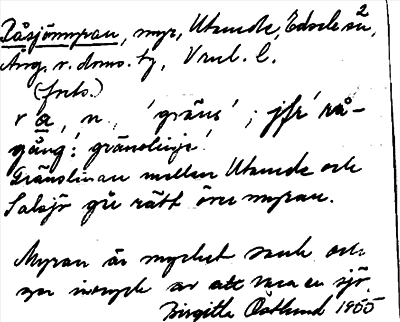 Råsjömyran, myr, Utmede, Edsele sn,
Ång. v. dmo. ty, Vml. l.
(forts.)
r a, n. 'gräns'; jfr rå-
gång: gränslinje.
Gränslinan mellan Utmede och
Salsjö går rätt över myran.
Myran är mycket sank och
ger intryck av att vara en sjö.
Birgitta Östlund 1955